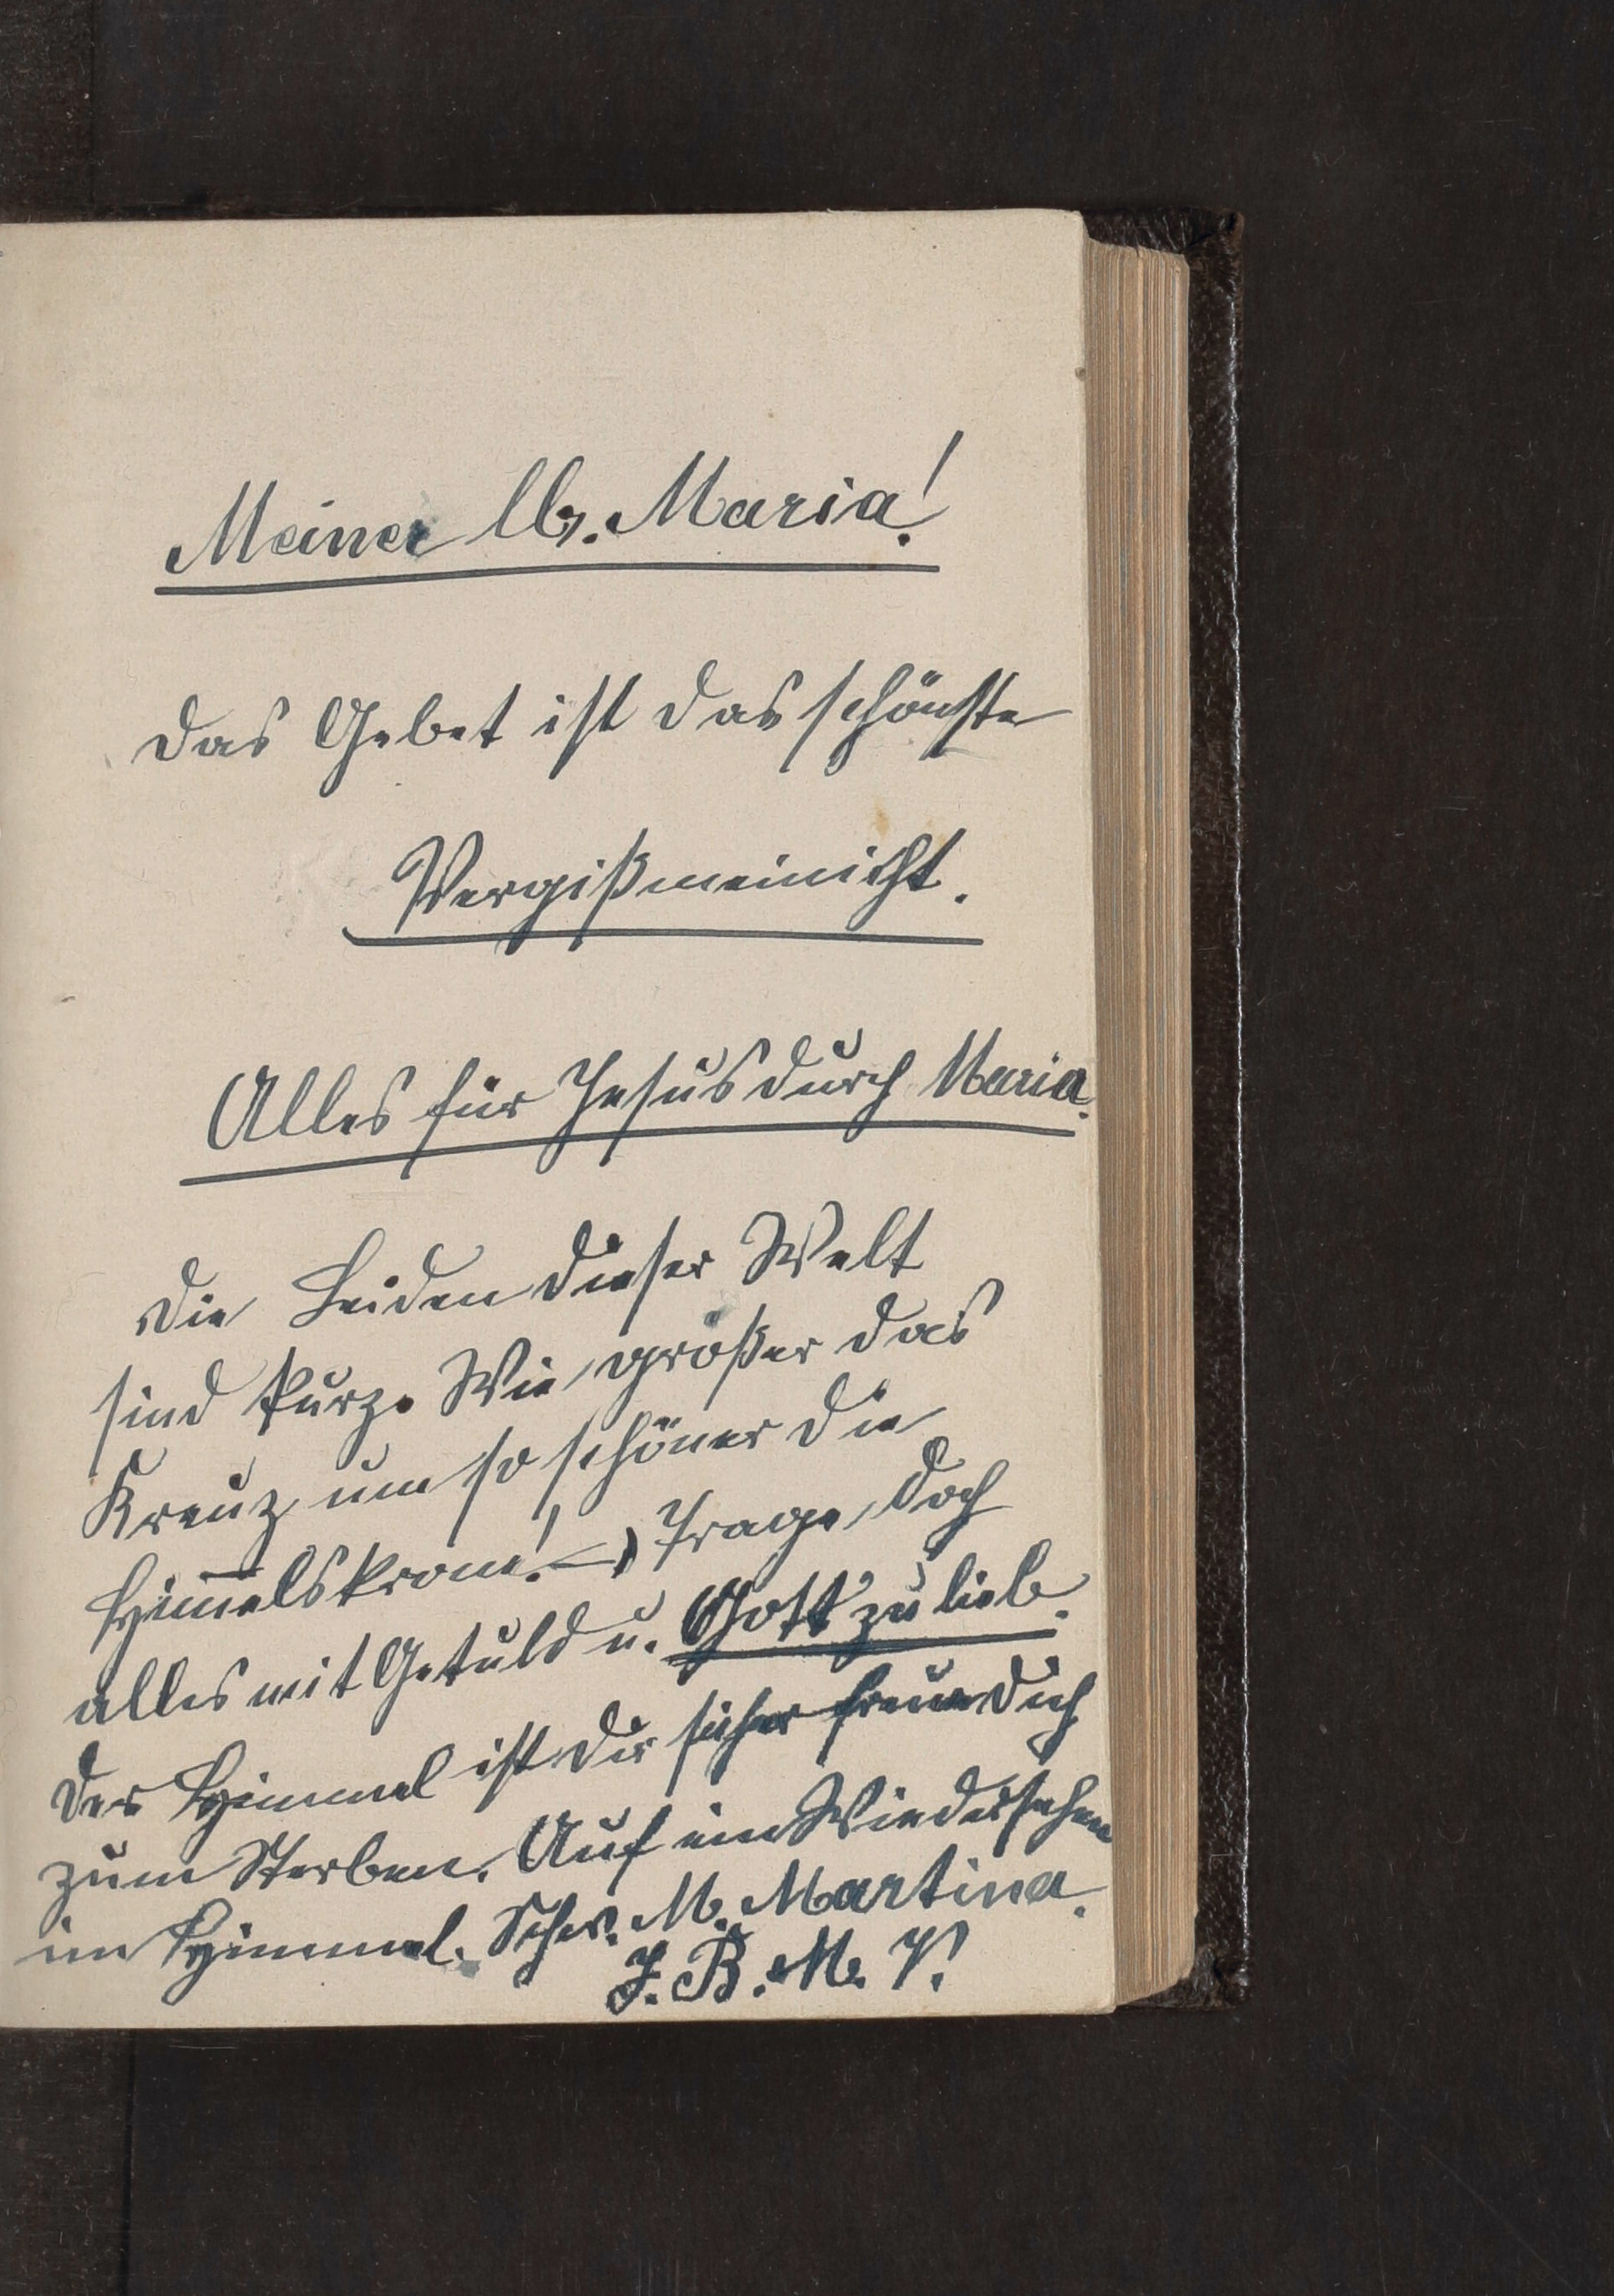 Meiner lb. Maria!
Das Gebet ist das schönste
Vergißmeinicht.
Alles für Jesus durch Maria.
Die Leiden dieser Welt
sind kurz. Wie größer das
Kreuz, um so schöner die
Himmelskrone! Trage doch
alles mit Getuld u. Gott zu lieb.
Der Himmel ist dir sicher freue dich
zum Sterben. Auf ein Wiedersehen
im Himmel. Schw. M. Martina.
J. B. M. V.